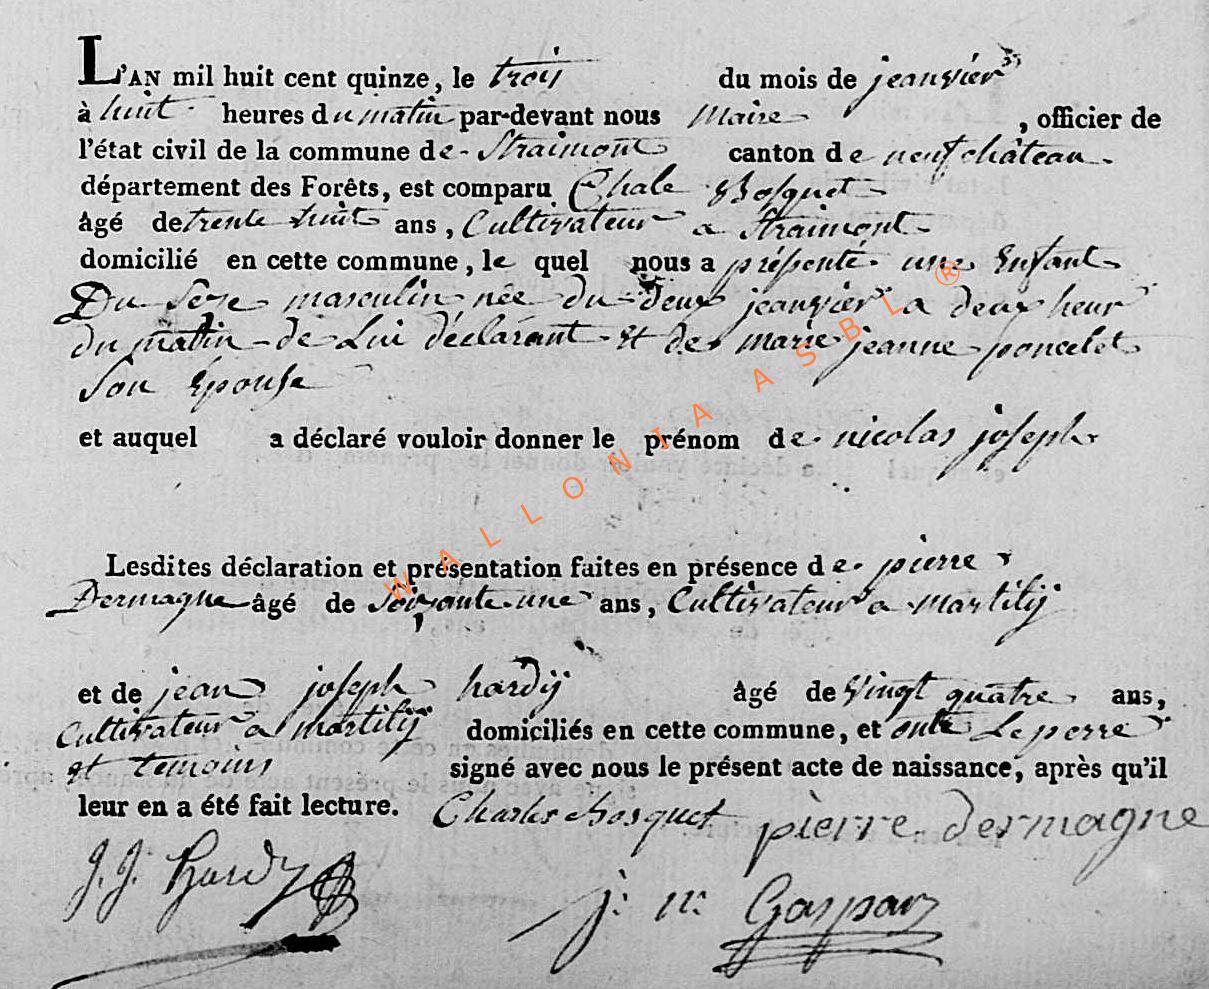 L'AN mil huit cent quinze, le trois du mois de jeanvier
à huit heures du matin par-devant nous Maire , officier de
l'état civil de la commune de Straimont canton de neufchâteau
département des Forêts, est comparu Chale Bosquet
âgé de trente huit ans, Cultivateur a Straimont
domicilié en cette commune, le quel nous a présenté une Enfant
Du sexe masculin née du deux jeanvier a deux heur
du matin de Lui déclarant et de marie jeanne poncelet
Son Epouse
et auquel a déclaré vouloir donner le prénom de nicolas joseph
Lesdites déclaration et présentation faites en présence de pierre
Dermagne âgé de soixante une ans, Cultivateur a martilij
et de jean joseph hardij âgé de vingt quatre ans,
Cultivateur a martilij domiciliés en cette commune, et onte Le perre
et temoins signé avec nous le présent acte de naissance, après qu'il
leur en a été fait lecture. Charles bosquet pierre dermagne
J. J. Hardy j: n: Gaspar
WALLONIA ASBL ®